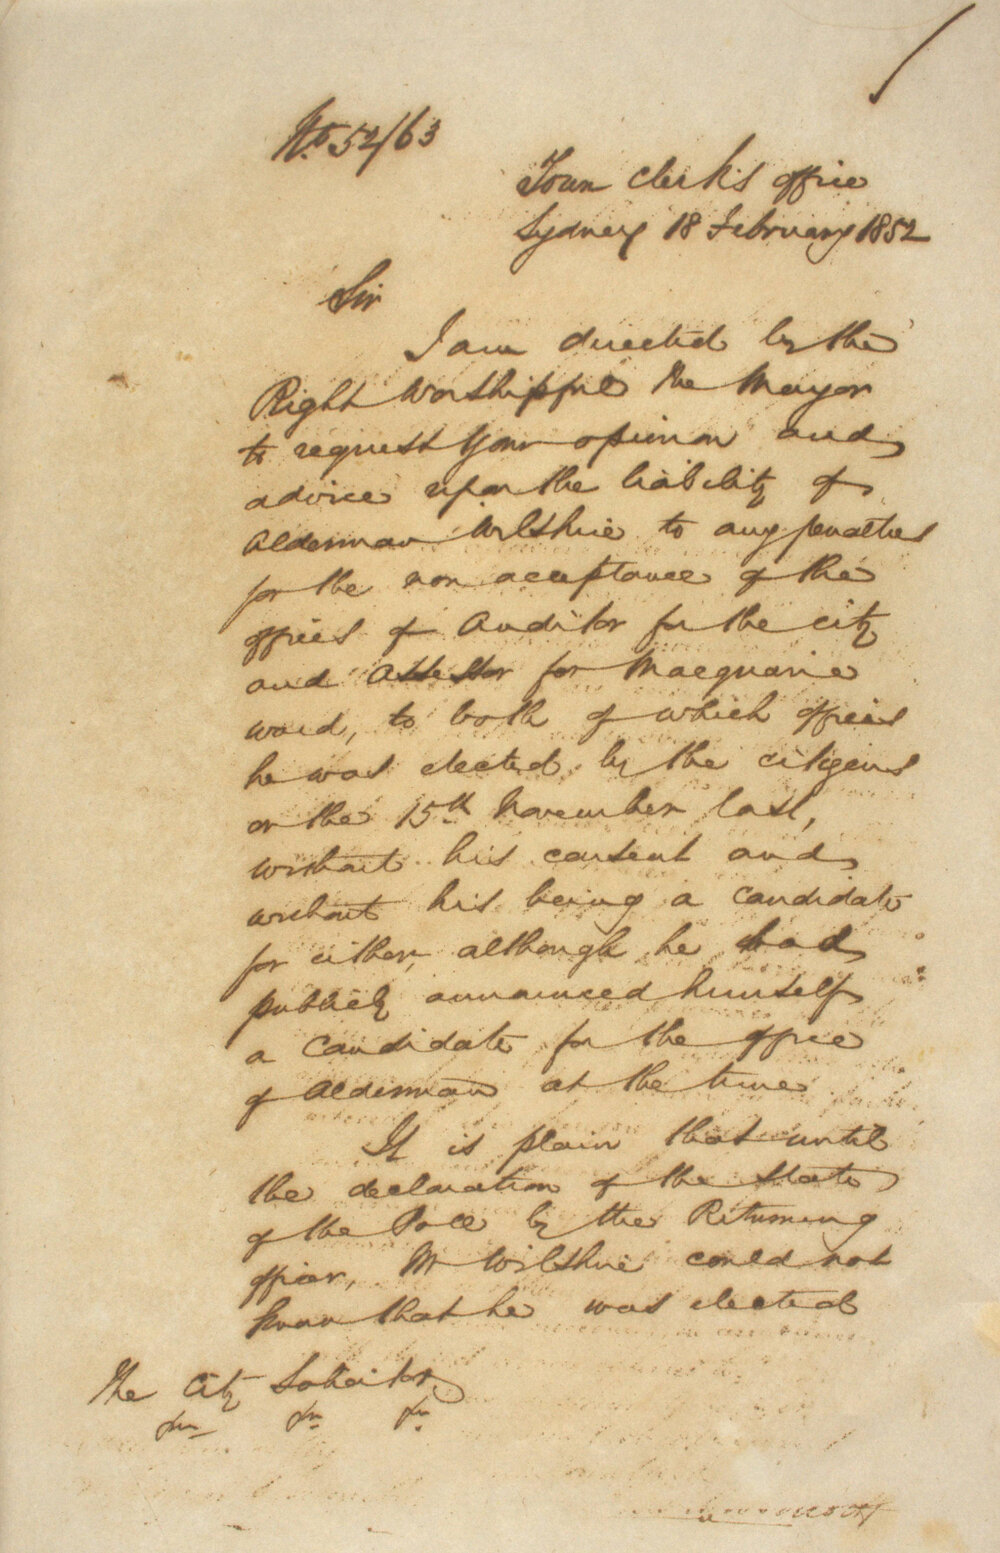 No. 52/63
Town Clerk's office
Sydney 18 February 1852
Sir
I am directed by the
Right Worshipful the Mayor
to request your opinion and
advice upon the liability of
Alderman Wilshire to any penalties
for the non acceptance of the
offices of Auditor for the city
and Assessor for Macquarie
ward, to both of which offices
he was elected by the citizens
on the 15th November last,
without his consent and
without his being a candidate
for either, although he had
publicly announced himself
a candidate for the office
of Alderman at the time
It is plain that until
the declaration of the State
of the Poll by the Returning
officer, Mr Wilshire could not
know that he was elected
The City Solicitor